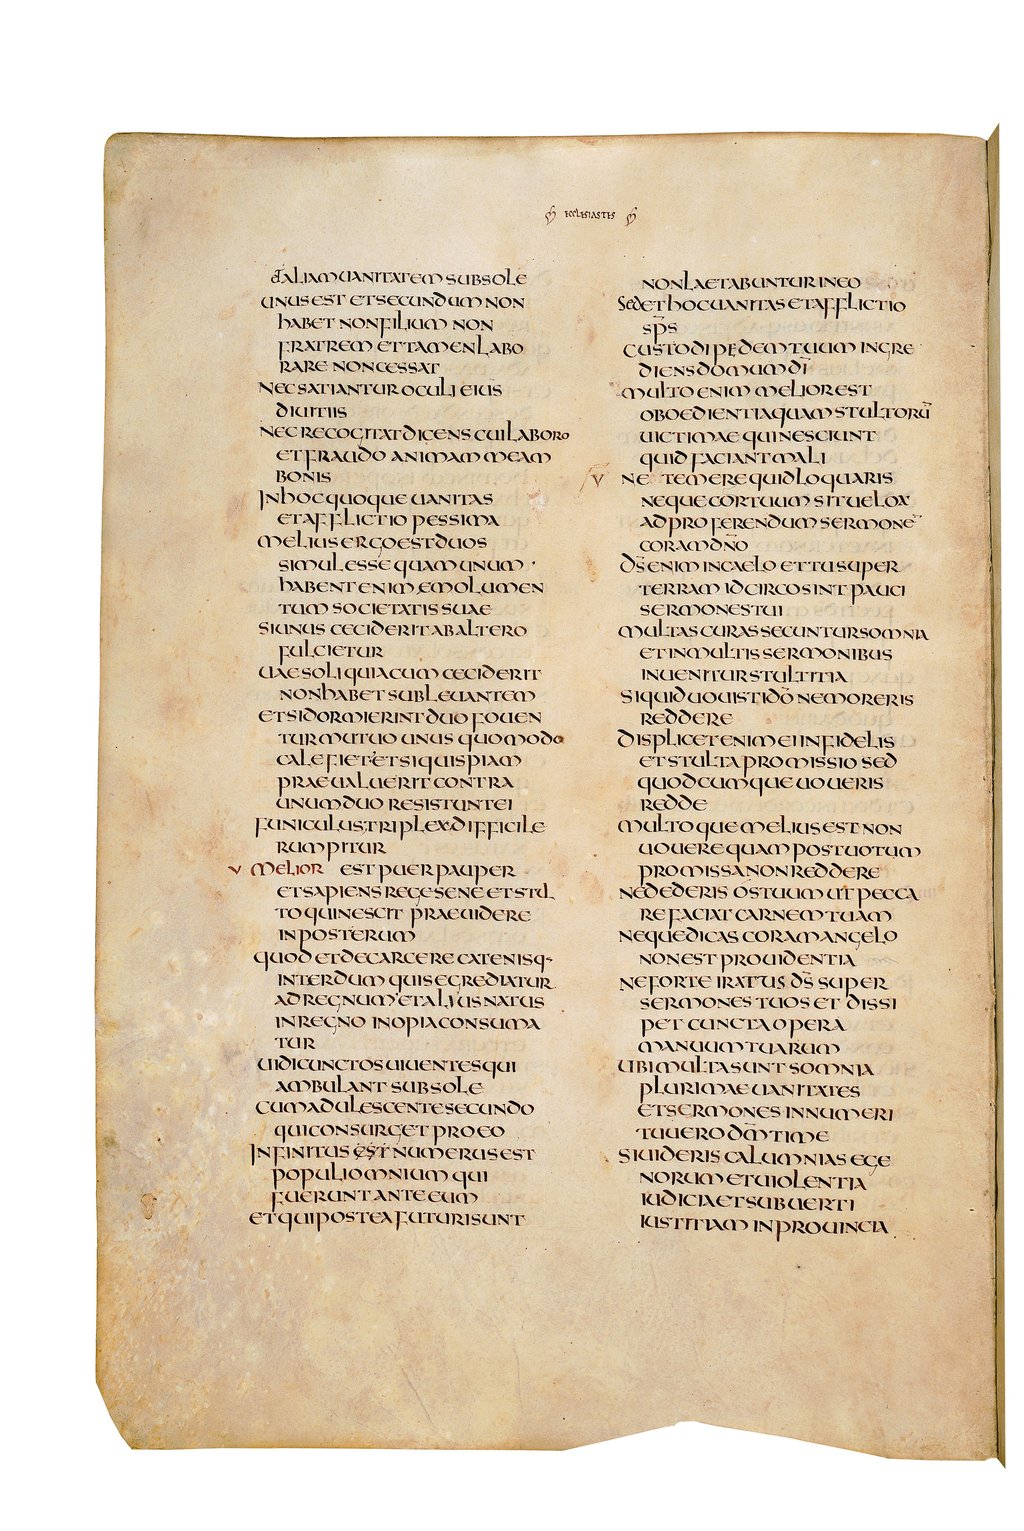 ECCLESIASTES
ET ALIAM UANITATEM SUB SOLE
UNUS EST ET SECUNDUM NON
HABET NON FILIUM NON
FRATREM ET TAMEN LABO
RARE NON CESSAT
NEC SATIANTUR OCULI EIUS
DIUITIIS
NEC RECOGITAT DICENS CUI LABORO
ET FRAUDO ANIMAM MEAM
BONIS
IN HOC QUOQUE UANITAS
ET AFFLICTIO PESSIMA
MELIUS ERGO EST DUOS
SIMUL ESSE QUAM UNUM
HABENT ENIM EMOLUMEN
TUM SOCIETATIS SUAE
SI UNUS CECIDERIT AB ALTERO
FULCIETUR
UAE SOLI QUIA CUM CECIDERIT
NON HABET SUBLEUANTEM
ET SI DORMIERINT DUO FOUEN
TUR MUTUO UNUS QUOMODO
CALEFIET ET SI QUISPIAM
PRAEUALUERIT CONTRA
UNUM DUO RESISTUNT EI
FUNICULUS TRIPLEX DIFFICILE
RUMPITUR
V MELIOR EST PUER PAUPER
ET SAPIENS REGE SENE ET STUL
TO QUI NESCIT PRAEUIDERE
IN POSTERUM
QUOD ET DE CARCERE CATENISQ·
INTERDUM QUIS EGREDIATUR
AD REGNUM ET ALIUS NATUS
IN REGNO INOPIA CONSUMA
TUR
UIDI CUNCTOS UIUENTES QUI
AMBULANT SUB SOLE
CUM ADULESCENTE SECUNDO
QUI CONSURGET PRO EO
INFINITUS EST NUMERUS EST
POPULI OMNIUM QUI
FUERUNT ANTE EUM
ET QUI POSTEA FUTURI SUNT
NON LAETABUNTUR IN EO
SED ET HOC UANITAS ET AFFLICTIO
SP̄S
CUSTODI PEDEM TUUM INGRE
DIENS DOMUM DĪ
MULTO ENIM MELIOR EST
OBOEDIENTIA QUAM STULTORŪ
UICTIMAE QUI NESCIUNT
QUID FACIANT MALI
V NE TEMERE QUID LOQUARIS
NEQUE COR TUUM SIT UELOX
AD PROFERENDUM SERMONĒ
CORAM DN̄O
DS̄ ENIM IN CAELO ET TU SUPER
TERRAM IDCIRCO SINT PAUCI
SERMONES TUI
MULTAS CURAS SECUNTUR SOMNIA
ET IN MULTIS SERMONIBUS
INUENITUR STULTITIA
SI QUID UOUISTI DŌ NE MORERIS
REDDERE
DISPLICET ENIM EI INFIDELIS
ET STULTA PROMISSIO SED
QUODCUMQUE UOUERIS
REDDE
MULTOQUE MELIUS EST NON
UOUERE QUAM POST UOTUM
PROMISSA NON REDDERE
NE DEDERIS OS TUUM UT PECCA
RE FACIAT CARNEM TUAM
NEQUE DICAS CORAM ANGELO
NON EST PROUIDENTIA
NE FORTE IRATUS DS̄ SUPER
SERMONES TUOS ET DISSI
PET CUNCTA OPERA
MANUUM TUARUM
UBI MULTA SUNT SOMNIA
PLURIMAE UANITATES
ET SERMONES INNUMERI
TU UERO DM̄ TIME
SI UIDERIS CALUMNIAS EGE
NORUM ET UIOLENTIA
IUDICIA ET SUBUERTI
IUSTITIAM IN PROUINCIA